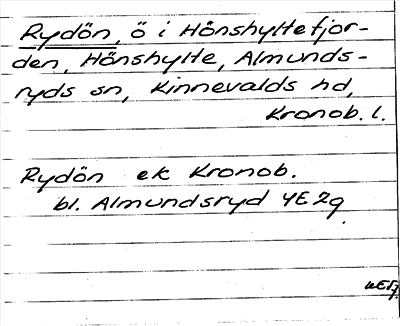 Rydön, ö i Hönshyltefjor-
den, Hönshylte, Almunds-
ryds sn, Kinnevalds hd,
Kronob. l.
Rydön ek Kronob.
bl. Almundsryd 4E2g